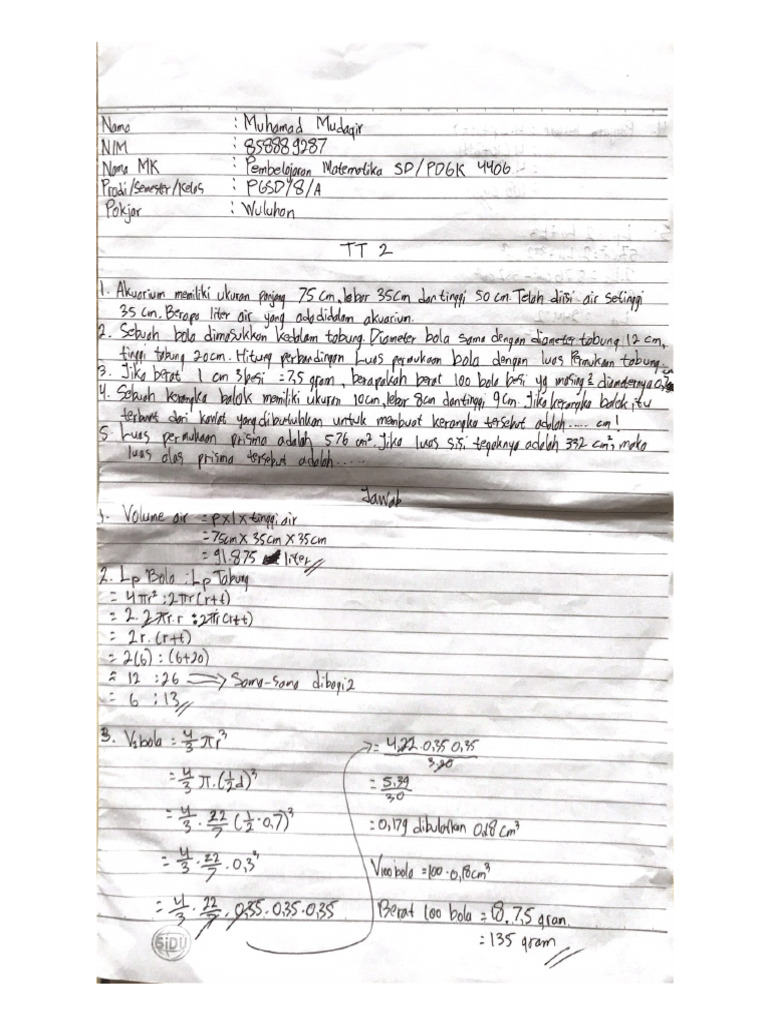 Nama : Muhamad Mudaqir
NIM : 858889287
Nama MK : Pembelajaran Matematika SD/PDGK 4406
Prodi/Semester/Kelas : PGSD/8/A
Pokjar : Wuluhan
TT 2
1. Akuarium memiliki ukuran panjang 75 cm, lebar 35 cm dan tinggi 50 cm. Telah diisi air setinggi
35 cm. Berapa liter air yang ada didalam akuarium.
2. Sebuah bola dimasukkan kedalam tabung. Diameter bola sama dengan diameter tabung 12 cm,
tinggi tabung 20 cm. Hitung perbandingan Luas permukaan bola dengan luas Permukaan tabung.
3. Jika berat 1 cm 3 besi = 7,5 gram, berapakah berat 100 bola besi yg masing² diameternya 0,7
4. Sebuah kerangka balok memiliki ukuran 10cm, lebar 8cm dan tinggi 9 cm. Jika kerangka balok itu
terbuat dari kawat yang dibutuhkan untuk membuat kerangka tersebut adalah..... cm!
5. Luas permukaan prisma adalah 576 cm². Jika luas sisi tegaknya adalah 332 cm², maka
luas alas prisma tersebut adalah.....
Jawab
1. Volume air = p x l x tinggi air
= 75cm x 35cm x 35cm
= 91.875 liter
2. Lp Bola : Lp Tabung
= 4πr² : 2πr(r+t)
= 2.2πr.r : 2πr(r+t)
= 2r.(r+t)
= 2(6) : (6+20)
= 12 : 26 → Sama-sama dibagi 2
= 6 : 13
3. V₁ bola = 4/3 πr³
= 4/3 π.(1/2 d)³
= 4/3 . 22/7 (1/2 . 0,7)³
= 4/3 . 22/7 . 0,3³
= 4/3 . 22/7 . 0,35 . 0,35 . 0,35
= 4.22 . 0,35 0,35 / 3.20
= 5,39/30
= 0,179 dibulatkan 0,18 cm³
V100 bola = 100 . 0,18cm³
Berat 100 bola = 18. 7,5 gram
= 135 gram
SiDU